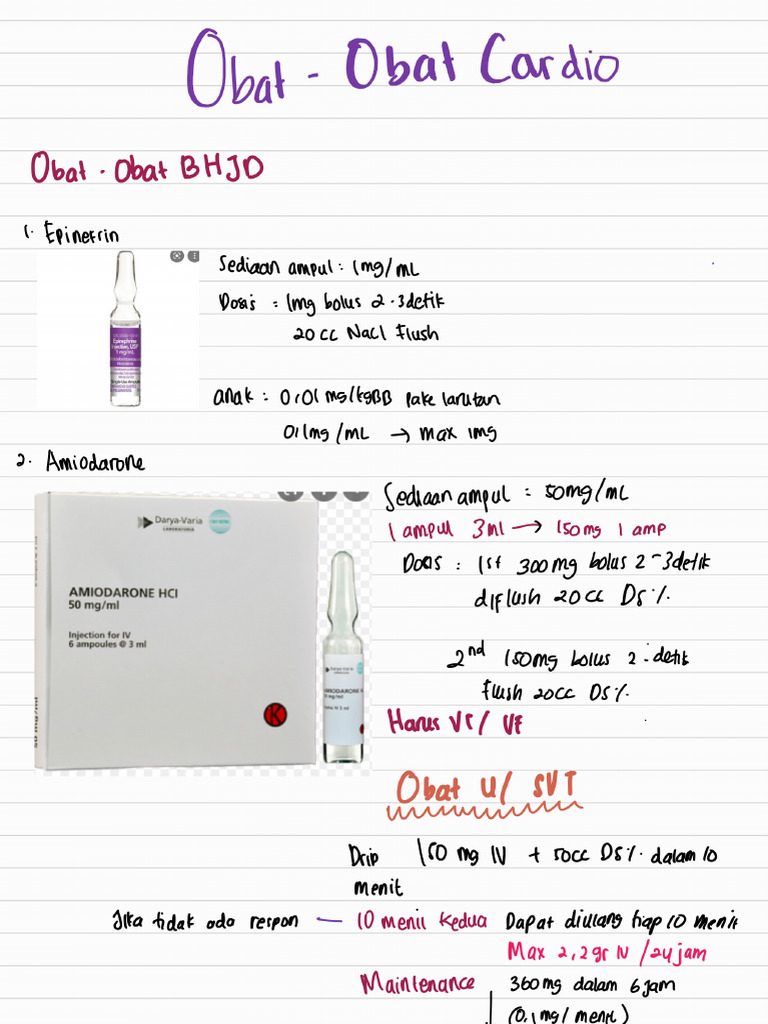 Obat - Obat Cardio
Obat - Obat BHJD
1. Epinefrin
Sediaan ampul : 1mg/mL
Dosis : 1mg bolus 2-3detik
20 cc Nacl Flush
Epinephrine
Injection, USP
1 mg/mL
anak : 0,01 mg/kgBB pake larutan
0,1mg/mL → max 1mg
2. Amiodarone
Sediaan ampul : 50mg/mL
1 ampul 3ml → 150mg 1 amp
Dosis : 1st 300mg bolus 2-3detik
diflush 20cc D5%
2nd 150mg bolus 2-detik
flush 20cc D5%
Harus VT/ VF
Darya-Varia
LABORATORIA
AMIODARONE HCl
50 mg/ml
Injection for IV
6 ampoules @ 3 ml
K
50 mg/ml
Darya-Varia
Obat U/ SVT
Drip 150 mg IV + 50cc D5% dalam 10
menit
Jika tidak ada respon — 10 menit kedua Dapat diulang tiap 10 menit
Max 2,2gr IV /24jam
Maintenance 360mg dalam 6jam
(0,1mg/ menit)